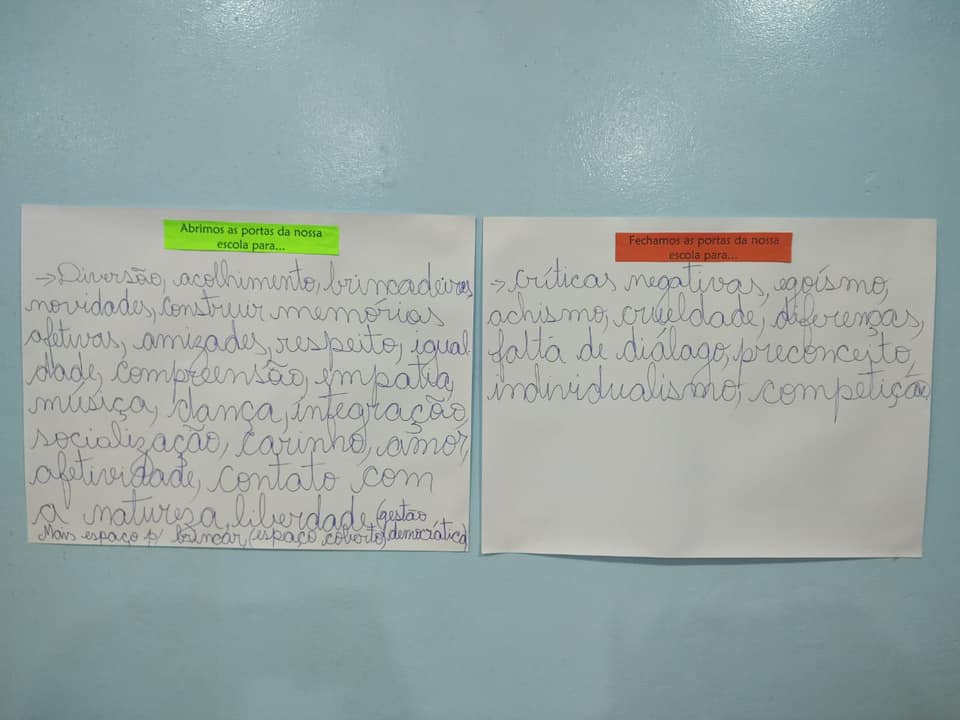 Abrimos as portas da nossa
escola para...
→ Diversão, acolhimento, brincadeiras,
novidades, construir memórias
afetivas, amizades, respeito, igual-
dade, compreensão, empatia,
música, dança, integração,
socialização, carinho, amor,
afetividade, contato com
a natureza, liberdade, (gestão
Mais espaço p/ brincar, (espaço coberto) democrática)
Fechamos as portas da nossa
escola para...
→ críticas negativas, egoísmo,
achismo, crueldade, diferenças,
falta de diálago, preconceito,
individualismo, competição,